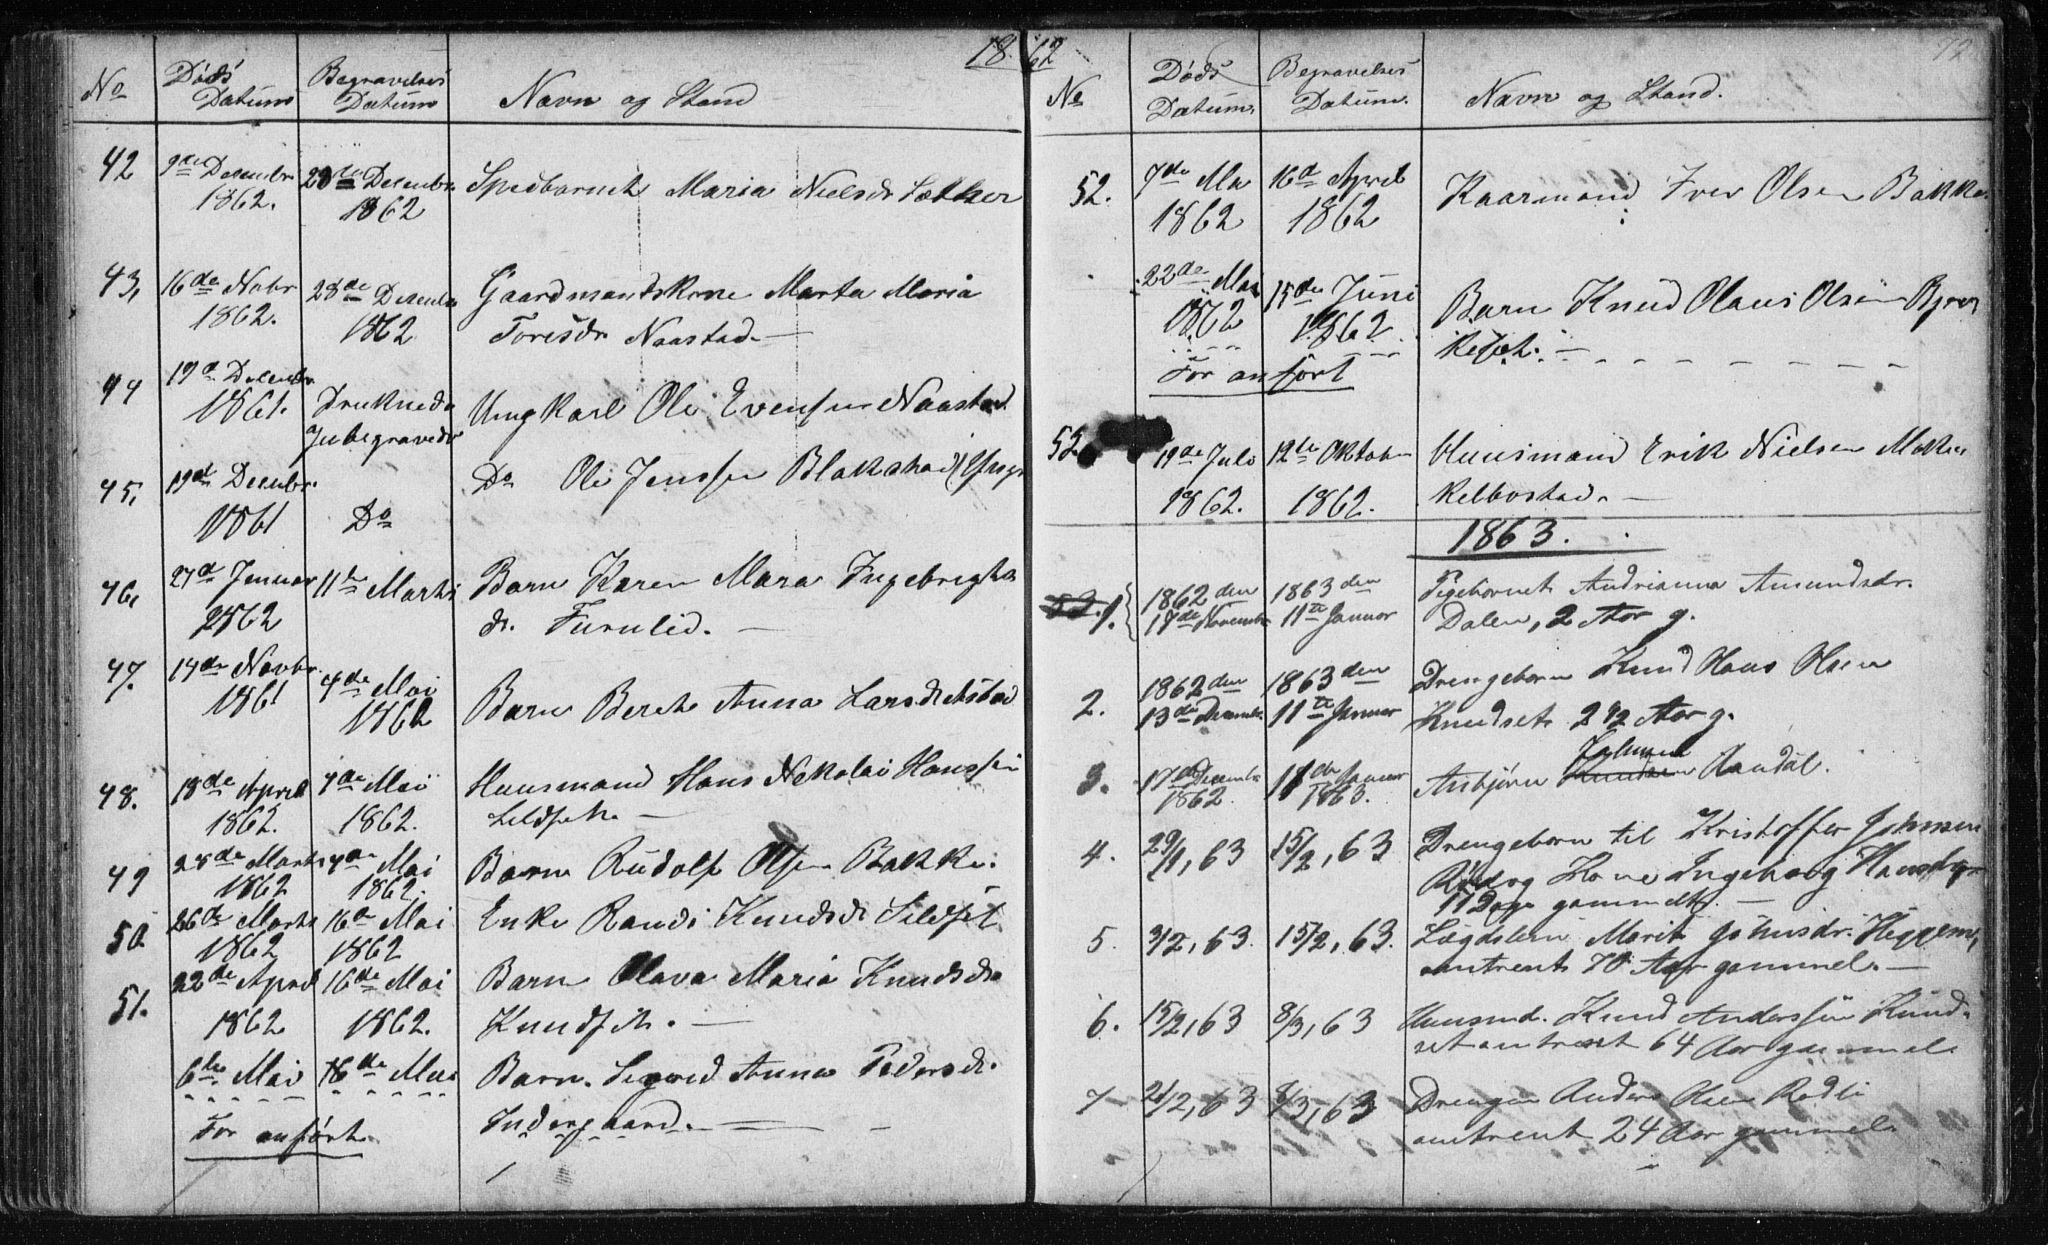 1862
No
Døds Datum
Begravelses Datum
Navn og Stand
42
9de Decembr 1862.
28de Decembr 1862
Spedbarnet Maria Nielsdr Sætter
43,
16de Nobr 1862.
28de Decembr 1862
Gaardmandskone Marta Maria
Toresdr Naastad
44
19d Decembr 1861.
Druknede
Ubegravede
Ungkarl Ole Evensen Naastad
45,
19d Decembr 1861
Do
Do Ole Jenssen Blakstad
46,
27d Januar 1862
11te Marts
Barn Karen Mara Ingebrigts
dr. Furulid.
47.
14de Novbr. 1861
4de Mai 1862
Barn Beret Anna Larsdr
48.
18de April 1862.
4de Mai 1862.
Huusmand Hans Nekolai Hanssen
Sildset.
49
28de Marts 1862
4de Mai 1862.
Barn Rudolf Olsen Bakke.
50
26de Marts 1862
16d Mai 1862
Enke Randi Knudsdr Sildset
51.
22de April 1862
16de Mai 1862.
Barn Olava Maria Knudsdr
Knudset.
6te Mai
16de Mai
Barn. Sigrid Anna Pedersdr.
Indergaard.
For anført
72
No
Døds Datum.
Begravelses Datum.
Navn og Stand.
52.
7de Ma 1862
16d April 1862
Kaarmand Iver Olsen Bakke
22de Mai 1862
15de Juni 1862
Barn Knud Olaus Olsen
For anført
53.
19de Juli 1862.
12te Oktober 1862.
Huusmand Erik Nielsen
1863.
53. 1.
1862 den 17de Novembr
1863 den 11te Januar
Pigebarnet Andrianna Amundsdr.
Dalen, 2 Aar g.
2.
1862 den 13de Decembr
1863 den 11te Januar
Drengebarn Knud Hans Olsen
Knudset 2 1/2 Aar g.
3.
17de Decembr 1862.
11de Januar 1863.
Anbjørn Knudsen
4.
29/1, 63
15/2, 63
Drengebarn til Kristoffer Johnsen
og Kone Ingeborg
17 Dage gammelt.
5.
3/2, 63.
15/2, 63.
Lægdslem Marit Johnsdr. Heggem,
omtrent 70 Aar gammel.
6.
15/2, 63
8/3, 63
Huusmd. Knud Anderssen Knud
set omtrent 64 Aar gammel
7
21/2, 63
8/3, 63
Drengen Anders Olsen Rødli
omtrent 24 Aar gammel.